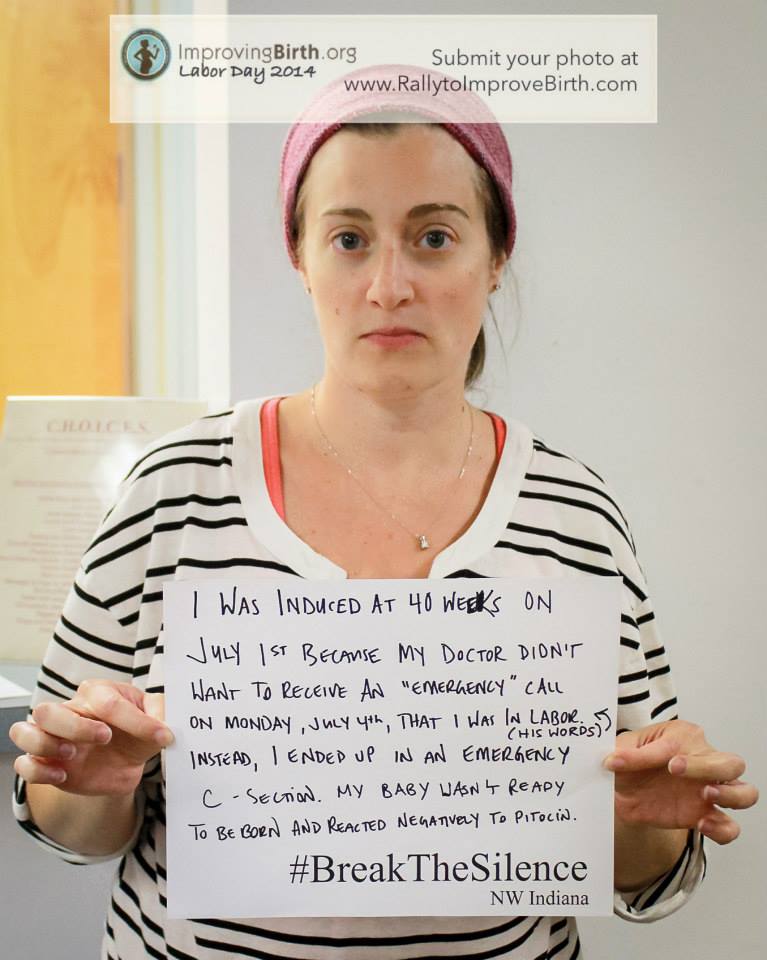 ImprovingBirth.org
Labor Day 2014
Submit your photo at
www.RallytoImproveBirth.com
C.H.O.I.C.E.S.
I WAS INDUCED AT 40 WEEKS ON
JULY 1ST BECAUSE MY DOCTOR DIDN'T
WANT TO RECEIVE AN "EMERGENCY" CALL
ON MONDAY, JULY 4th, THAT I WAS IN LABOR.
(HIS WORDS)
INSTEAD, I ENDED UP IN AN EMERGENCY
C-SECTION. MY BABY WASN'T READY
TO BE BORN AND REACTED NEGATIVELY TO PITOCIN.
#BreakTheSilence
NW Indiana